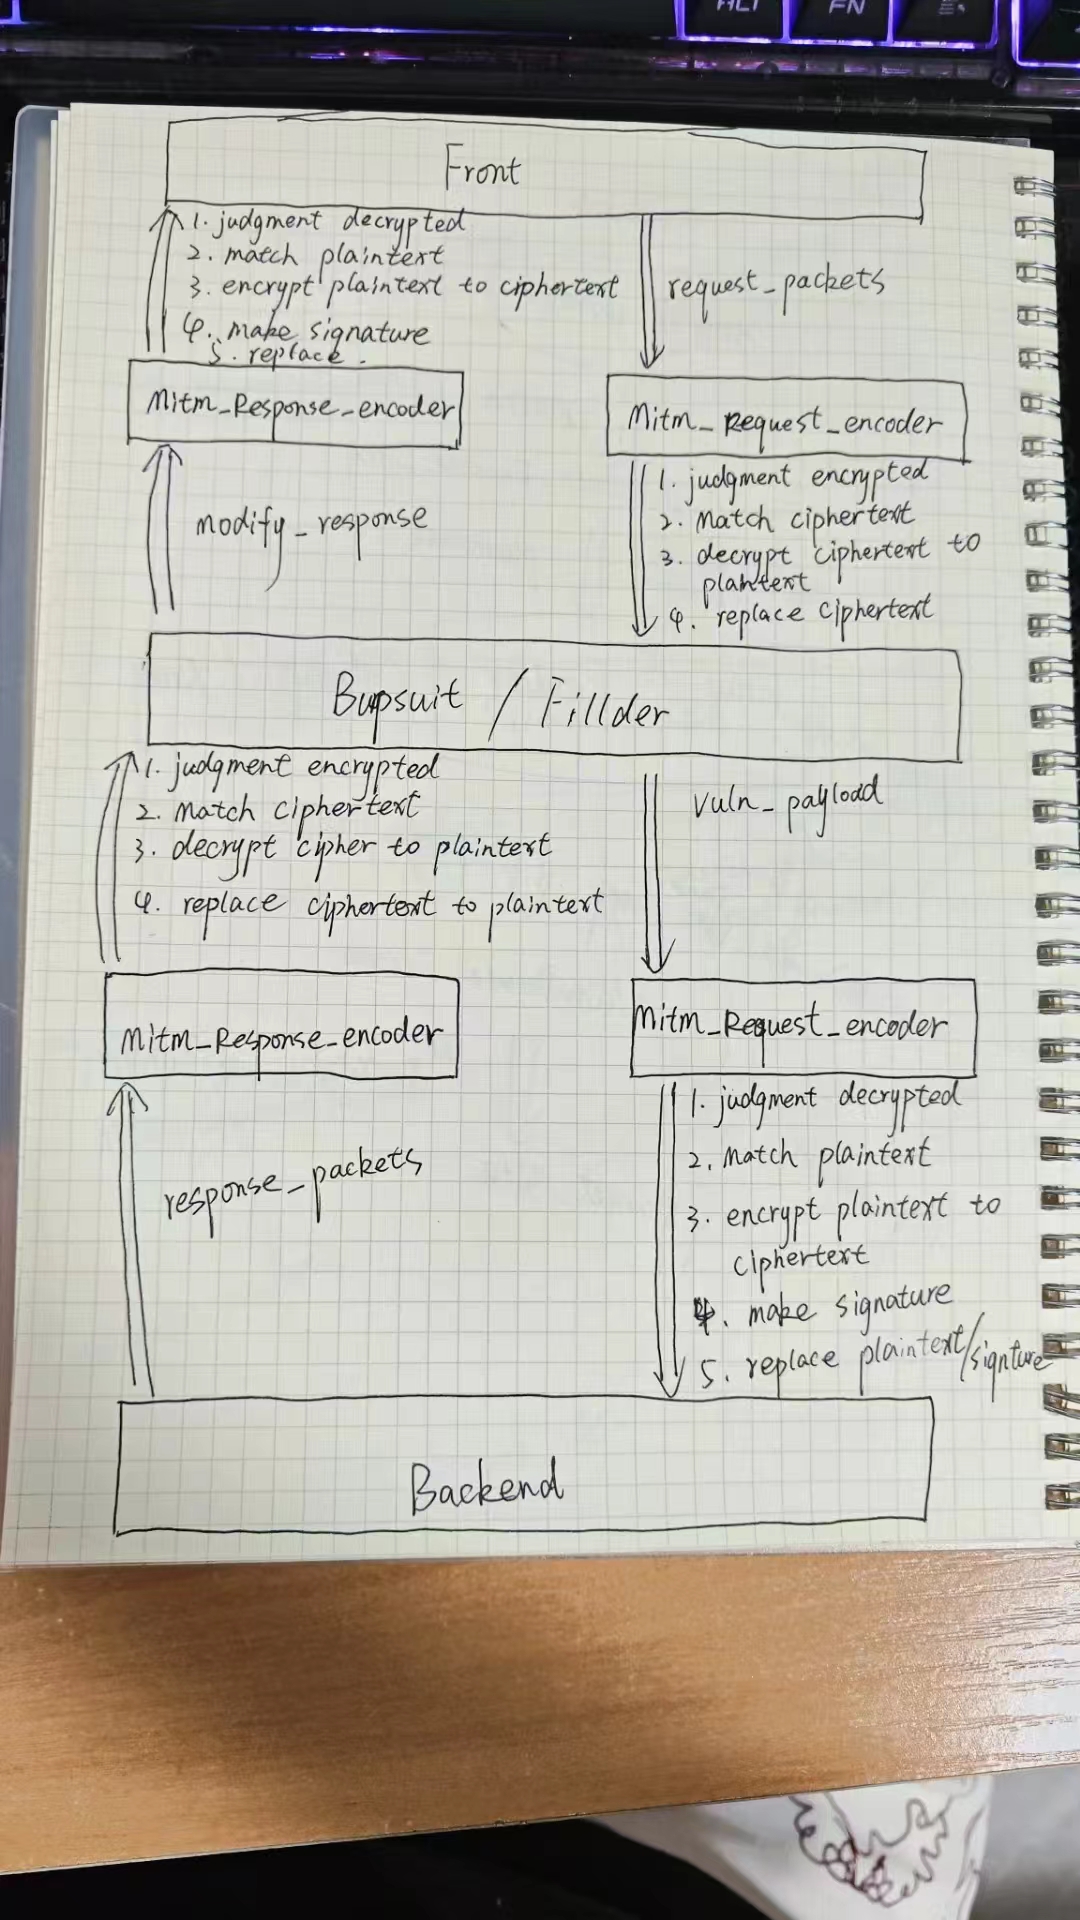 ALT
FN
Front
1. judgment decrypted
2. match plaintext
3. encrypt plaintext to ciphertext
4. make signature
5. replace.
request_packets
Mitm_Response_encoder
Mitm_Request_encoder
modify_response
1. judgment encrypted
2. Match ciphertext
3. decrypt ciphertext to
plaintext
4. replace ciphertext
Bupsuit / Fillder
1. judgment encrypted
2. Match ciphertext
3. decrypt cipher to plaintext
4. replace ciphertext to plaintext
vuln_payload
Mitm_Response_encoder
Mitm_Request_encoder
response_packets
1. judgment decrypted
2. Match plaintext
3. encrypt plaintext to
ciphertext
4. make signature
5. replace plaintext/signture
Backend